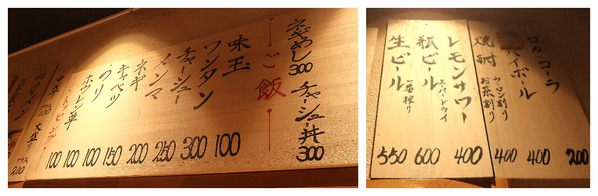 ネギめし 300
チャーシュー丼 300
ご飯
味玉 100
ワンタン 300
チャーシュー 250
メンマ 200
ネギ 150
キャベツ 100
のり 100
ホウレン草 100
トッピング
コカ・コーラ 200
ハイボール 400
焼酎 ウーロン割り お茶割り 400
レモンサワー 400
瓶ビール スーパードライ 600
生ビール 一番搾り 550